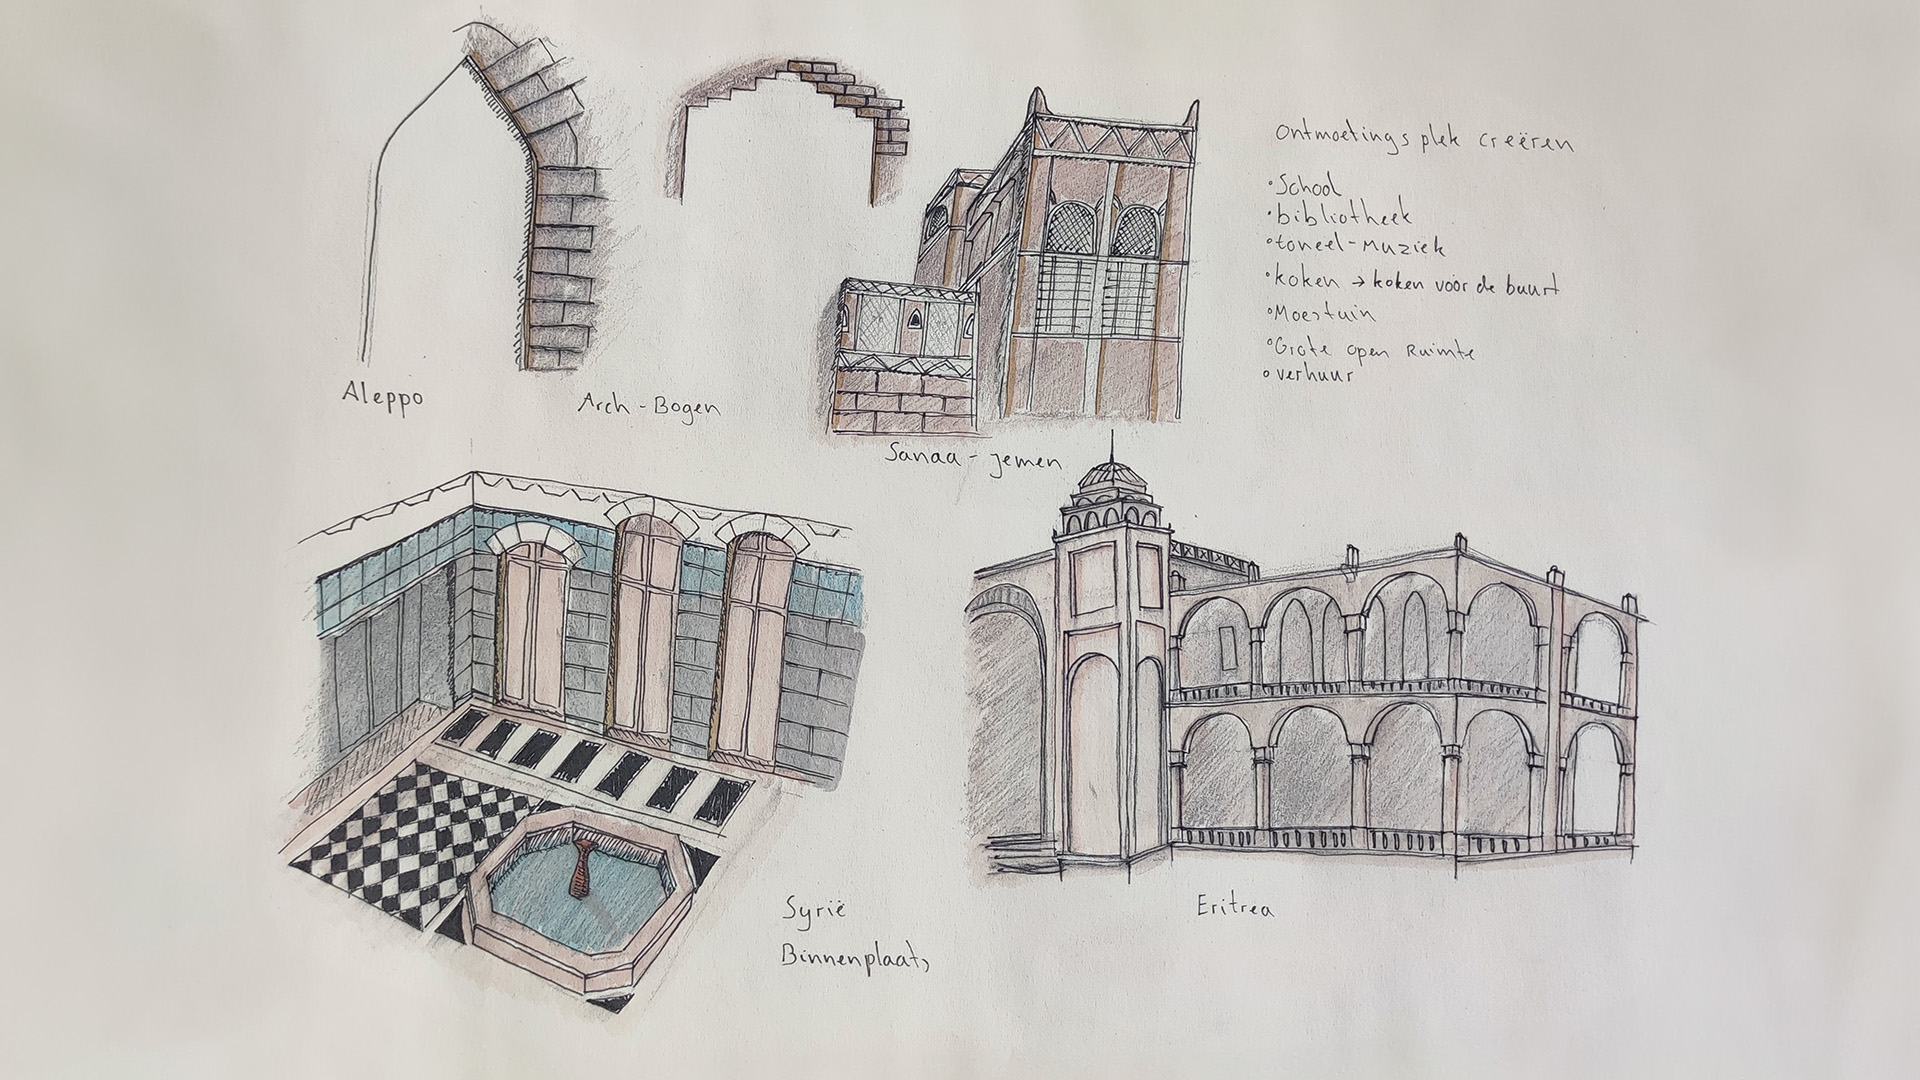 Aleppo
Arch - Bogen
Sanaa - Jemen
Ontmoetings plek creëren
• School
• bibliotheek
• toneel - Muziek
• koken → koken voor de buurt
• Moestuin
• Grote open Ruimte
• verhuur
Syrië
Binnenplaats
Eritrea